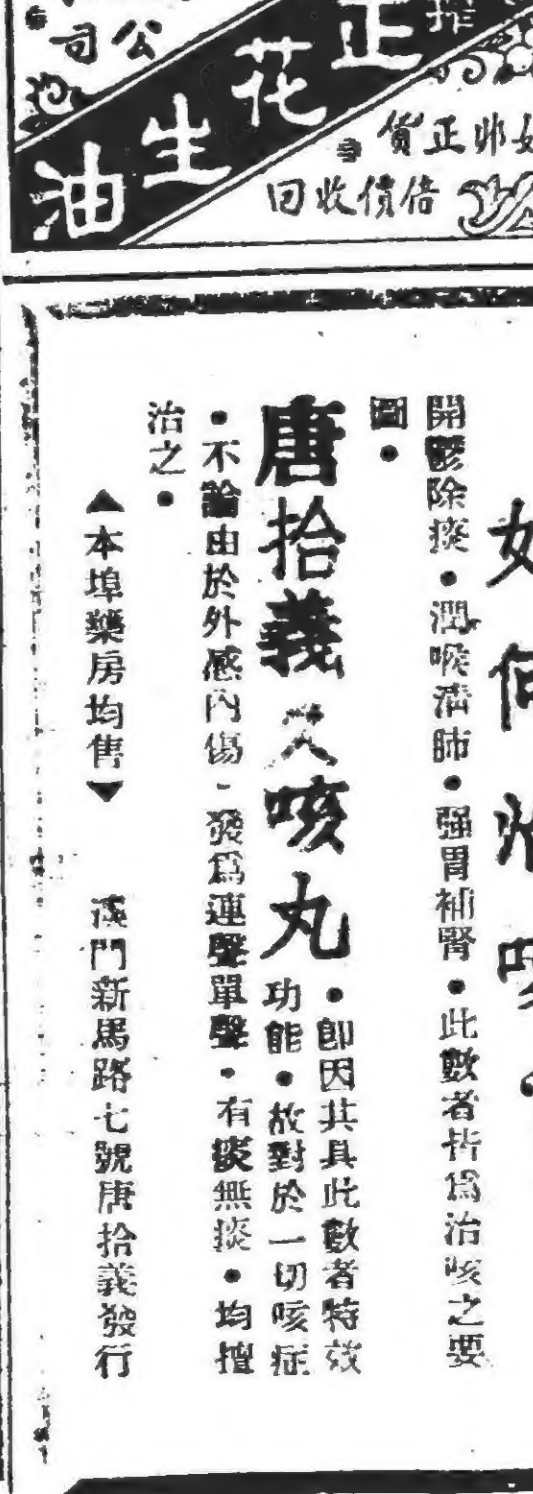 公司
正花生油
貨正非如
倍價收回
如何治咳
開鬱除痰・潤喉清肺・强胃補腎・此數者皆為治咳之要
圖・
唐拾義久咳丸・卽因其具此數者特效
功能・故對於一切咳症
・不論由於外感內傷・發為連聲單聲・有痰無痰・均擅
治之・
▲本埠藥房均售▼
澳門新馬路七號唐拾義發行